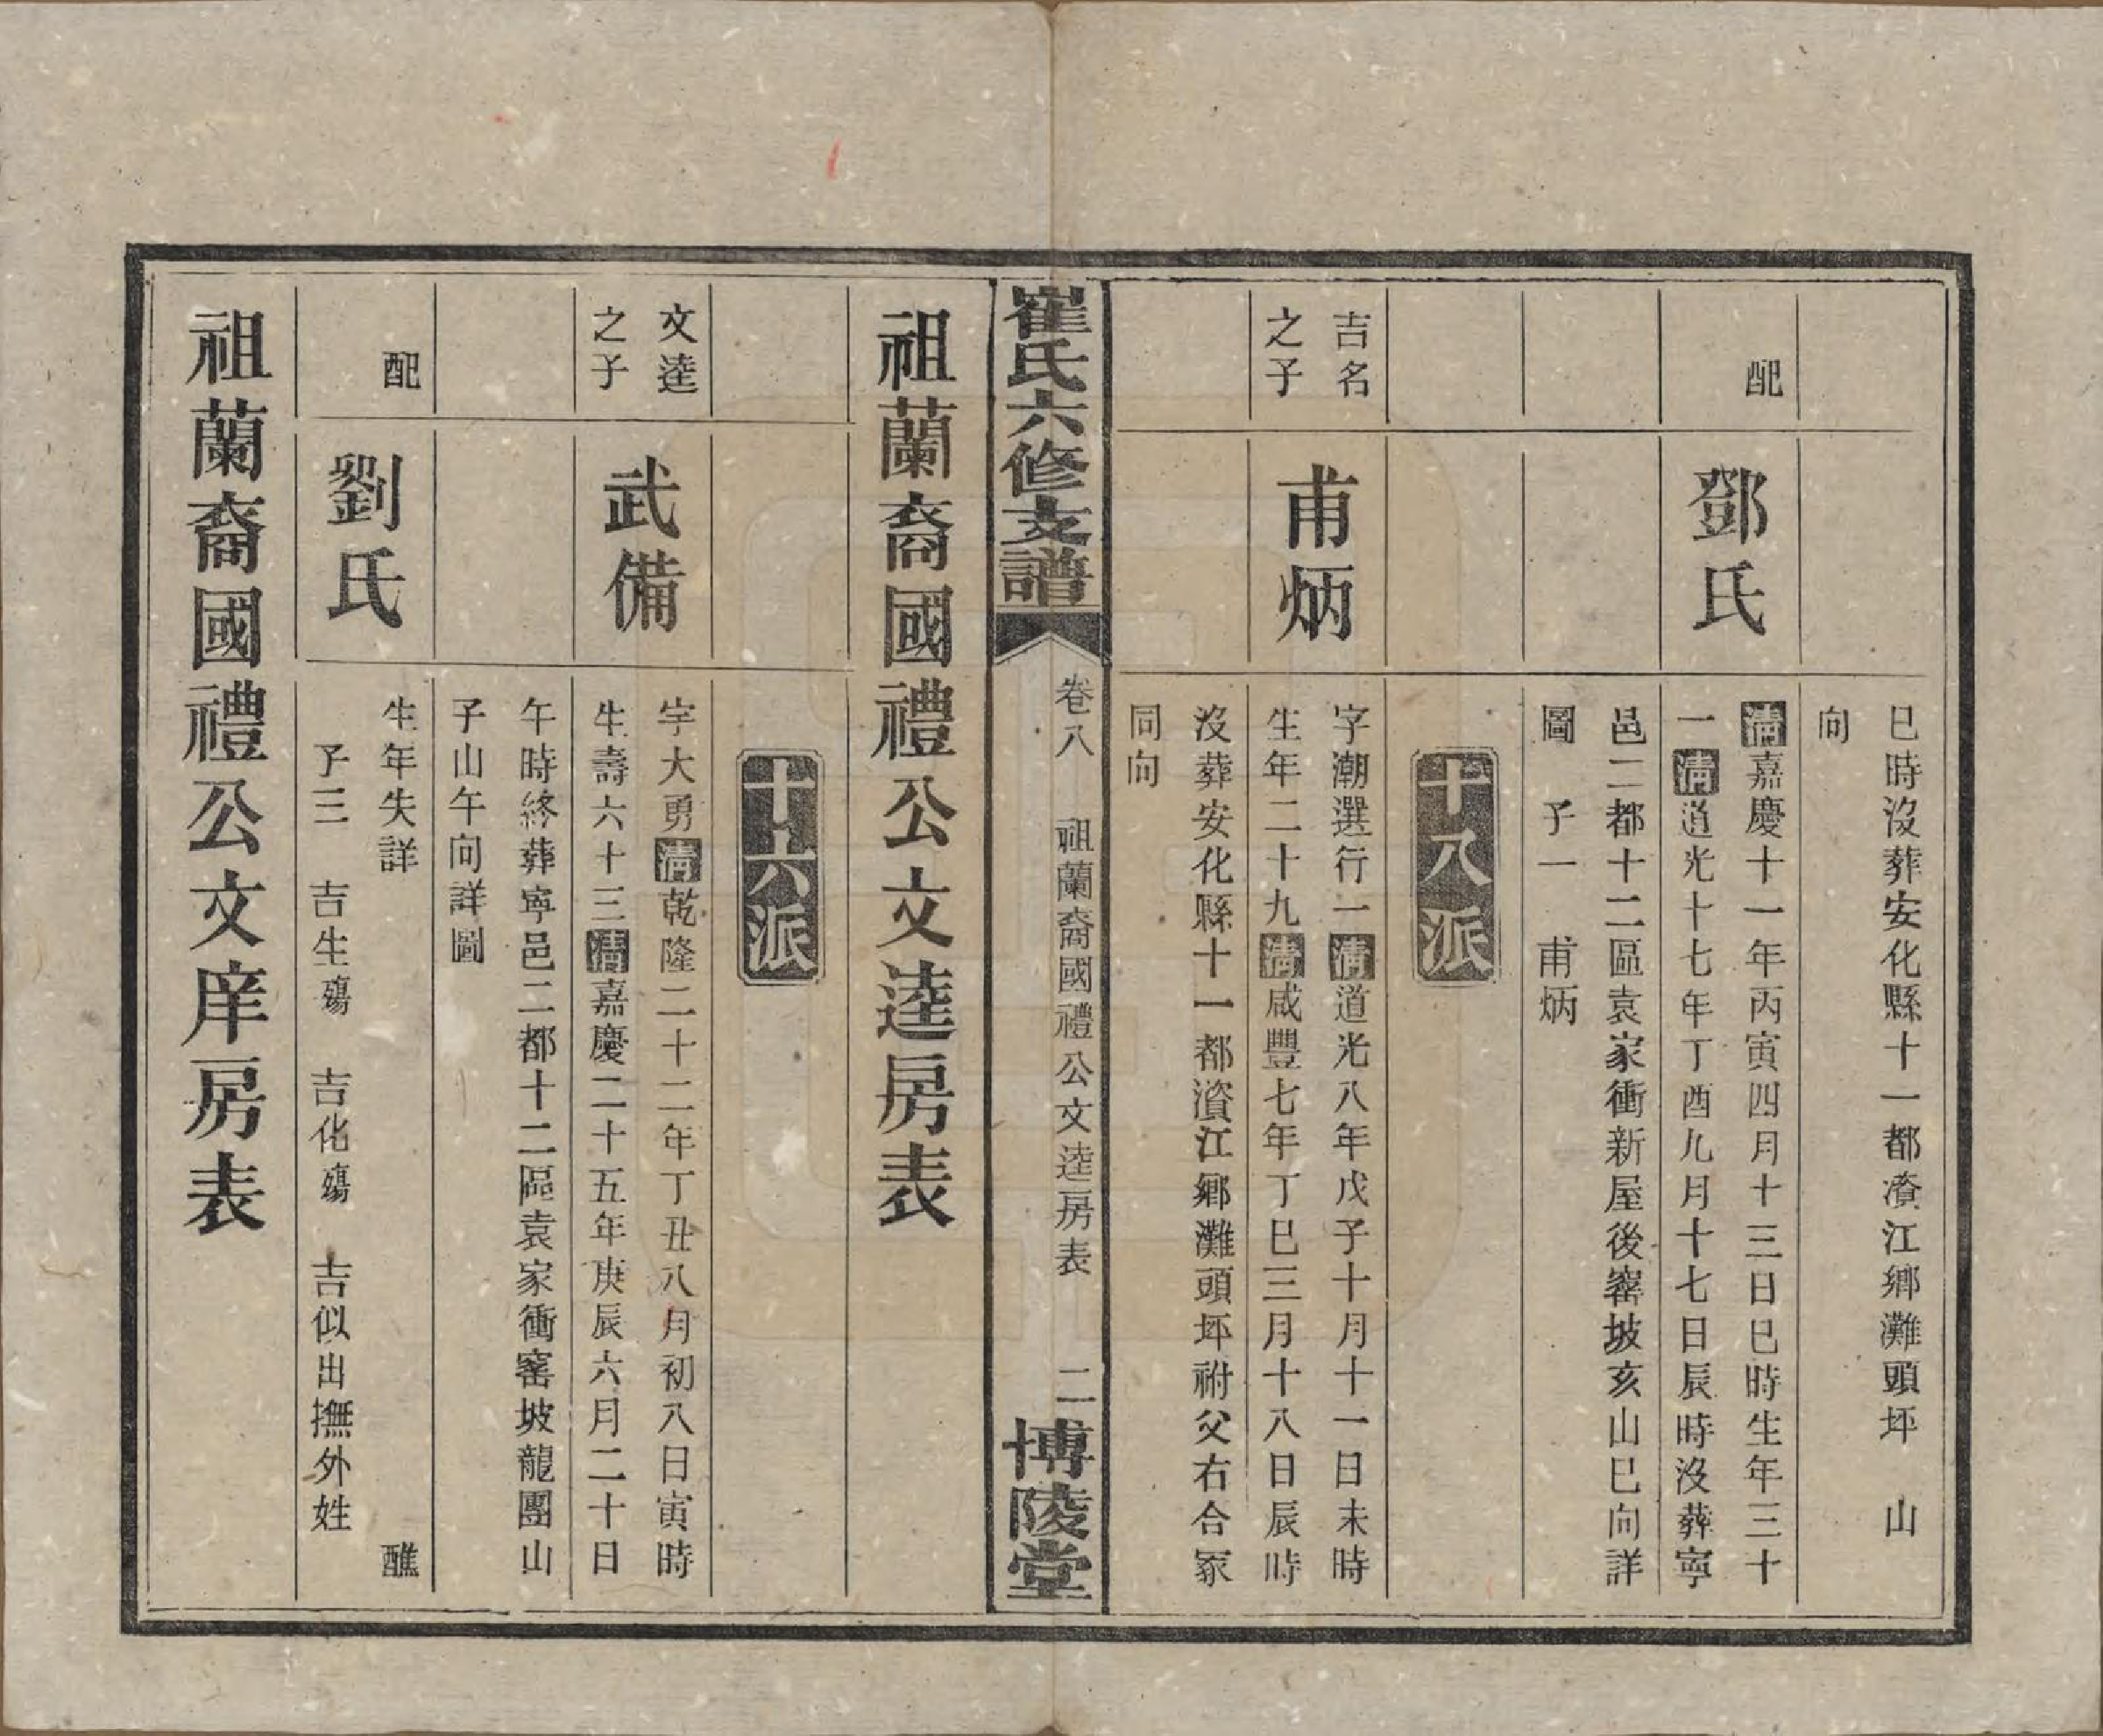 巳時沒葬安化縣十一都濱江鄉灘頭坪　山
向
配
鄧氏
清嘉慶十一年丙寅四月十三日巳時生年三十
一清道光十七年丁酉九月十七日辰時沒葬寧
邑二都十二區袁家衝新屋後窰坡亥山巳向詳
圖　子一　甫炳
十八派
吉名
之子
甫炳
字潮選行一清道光八年戊子十月十一日未時
生年二十九清咸豐七年丁巳三月十八日辰時
沒葬安化縣十一都濱江鄉灘頭坪祔父右合冢
同向
崔氏六修支譜
卷八　祖蘭裔國禮公文逵房表　二
博陵堂
祖蘭裔國禮公文逵房表
十六派
文逵
之子
武備
字大勇清乾隆二十二年丁丑八月初八日寅時
生壽六十三清嘉慶二十五年庚辰六月二十日
午時終葬寧邑二都十二區袁家衝窰坡龍團山
子山午向詳圖
配
劉氏
生年失詳　醮
子三　吉生殤　吉化殤　吉似出撫外姓
祖蘭裔國禮公文庠房表